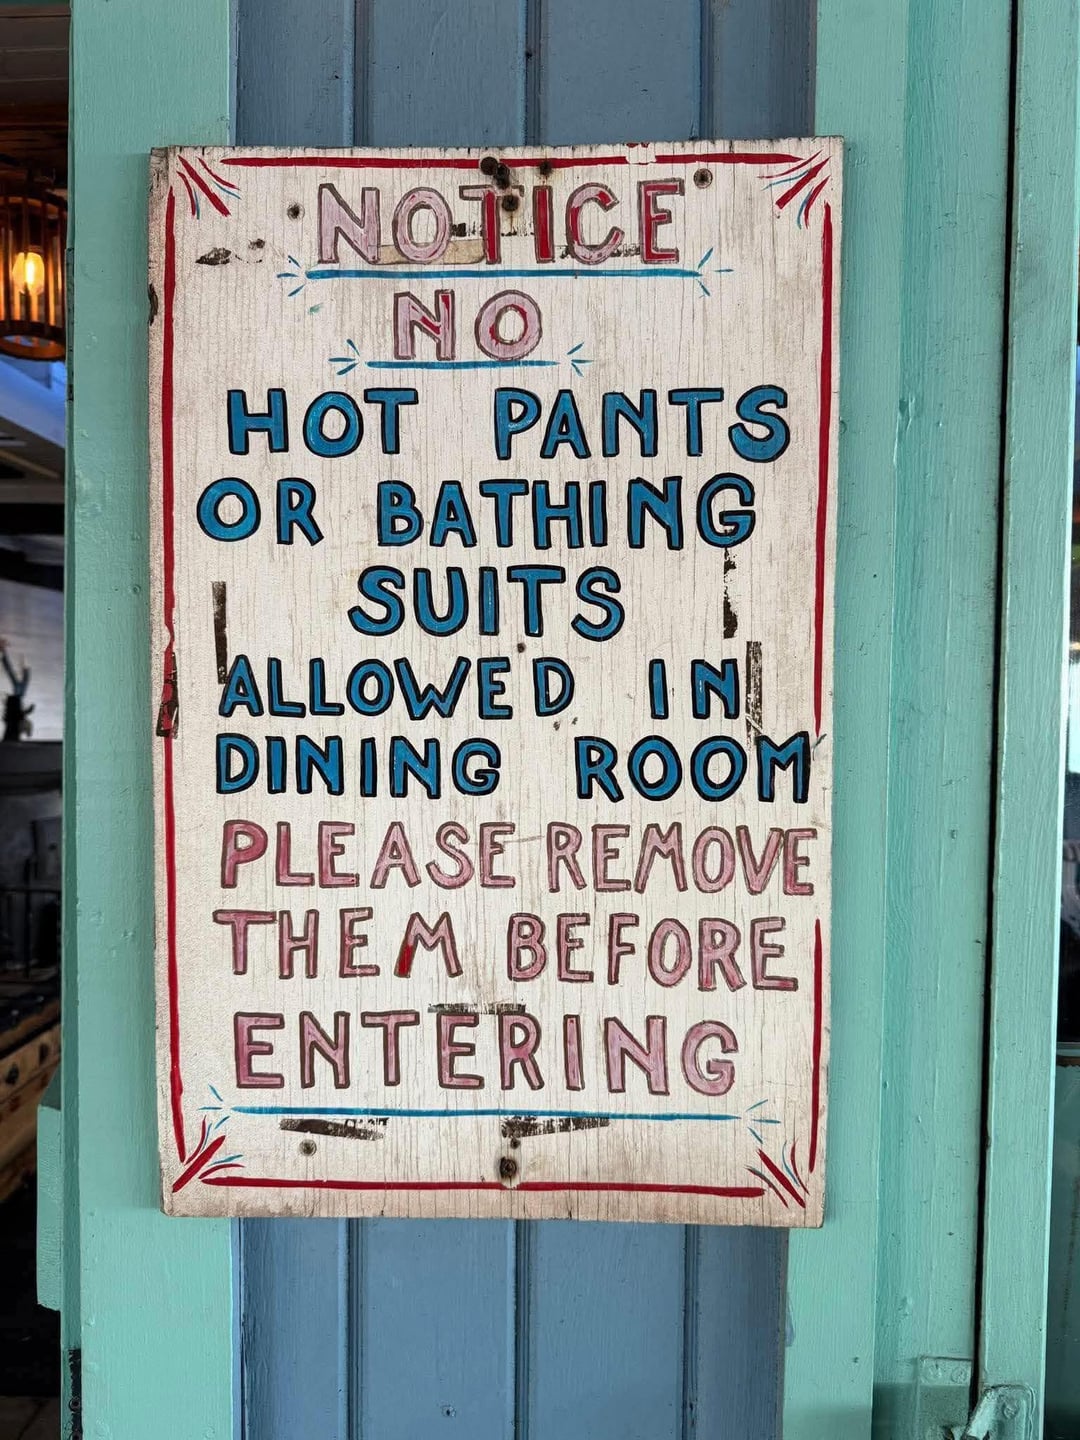 NOTICE
NO
HOT PANTS
OR BATHING
SUITS
ALLOWED IN
DINING ROOM
PLEASE REMOVE
THEM BEFORE
ENTERING